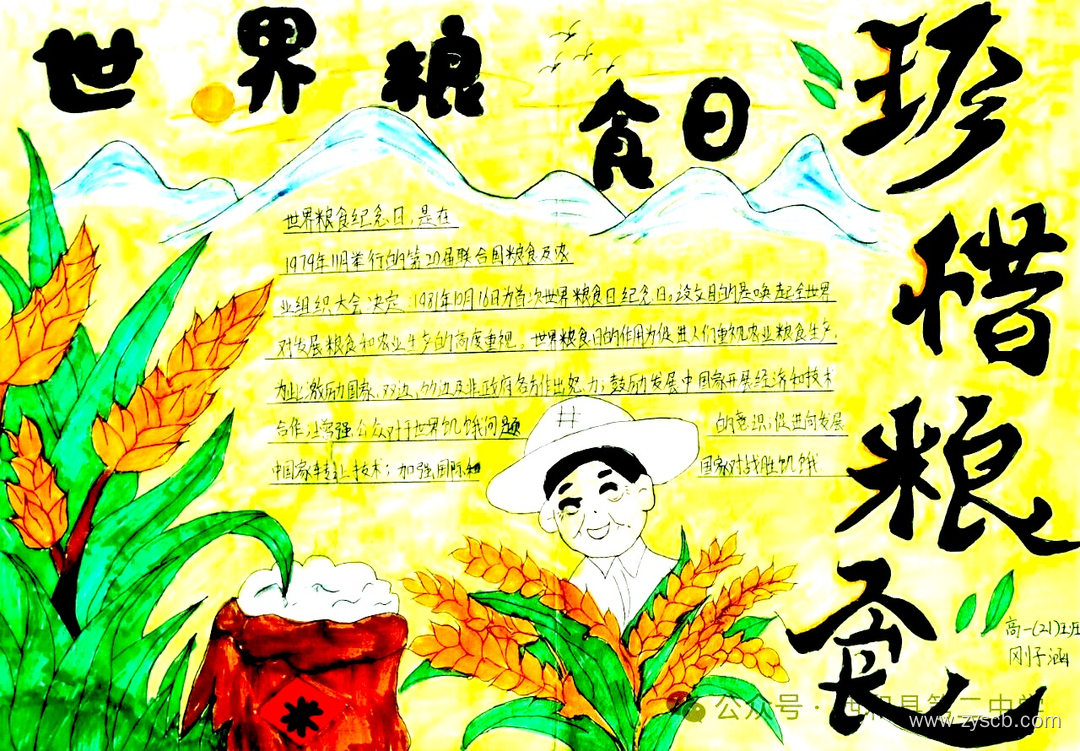 世界粮食日
珍惜粮食
世界粮食纪念日,是在
1979年11月举行的第20届联合国粮食及农
业组织大会决定:1981年10月16日为首次世界粮食日纪念日。其目的是唤起全世界
对发展粮食和农业生产的高度重视。世界粮食日的作用为促进人们重视农业粮食生产,
为此激励国家、双边、多边及非政府各方作出努力;鼓励发展中国家开展经济和技术
合作;增强公众对于世界饥饿问题 的意识;促进向发展
中国家转让技术;加强国际和 国家对战胜饥饿
高一(21)班
刚子涵
公众号·
县第二中学
www.zyscb.com